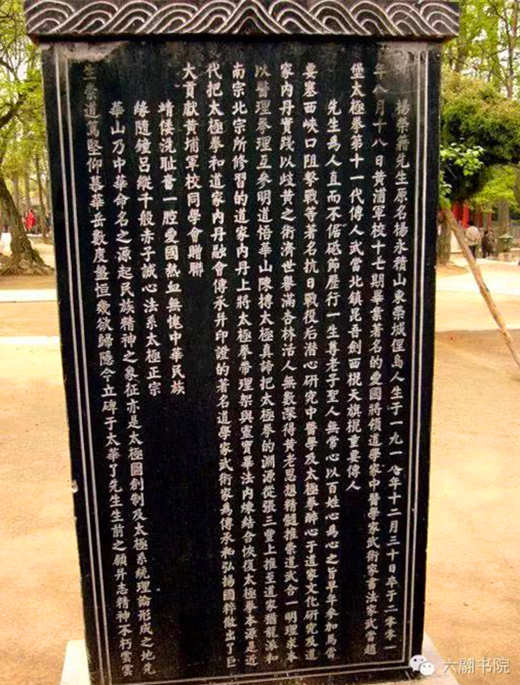 楊崇霖先生原名楊永積山東榮城俚島人生于一九一八年十二月三十日卒于二零零一
年八月十八日黄浦軍校十七期畢業著名的愛國將領道學家中醫學家武術家書法家武當趙
堡太極拳第十一代傳人武當北鎮昆吾劍西棍天旗棍重要傳人
先生為人直而不倨砥節厲行一生尊老子聖人無常心以百姓心為心之旨早年參加馬當
要塞西峽口阻擊戰等著名抗日戰役后潜心研究中醫學及太極拳醉心于道家文化研究及道
家内丹實踐以岐黄之術濟世譽滿杏林活人無數深得黄老思想精髓推崇道武合一明理求本
以醫理拳理互參明道悟華山陳摶太極真諦把太極拳的淵源從張三豐上推至道家猶龍派和
南宗北宗所修習的道家内丹上將太極拳帶理架與靈寶華法内煉結合恢复太極拳本源是近
代把太極拳和道家内丹融會傳承并印證的著名道學家武術家為傳承和弘揚國粹做出了巨
大貢獻黄埔軍校同學會贈聯
靖倭洗耻書一腔愛國熱血無愧中華民族
緣隨鐘吕縱千般赤子誠心法系太極正宗
華山乃中華命名之源起民族精神之象征亦是太極圖創制及太極系統理論形成之地先
生崇道篤堅仰慕華岳數度盤恒幾欲歸隱今立碑于太華了先生生前之願并志精神不朽雲雲
六翮书院